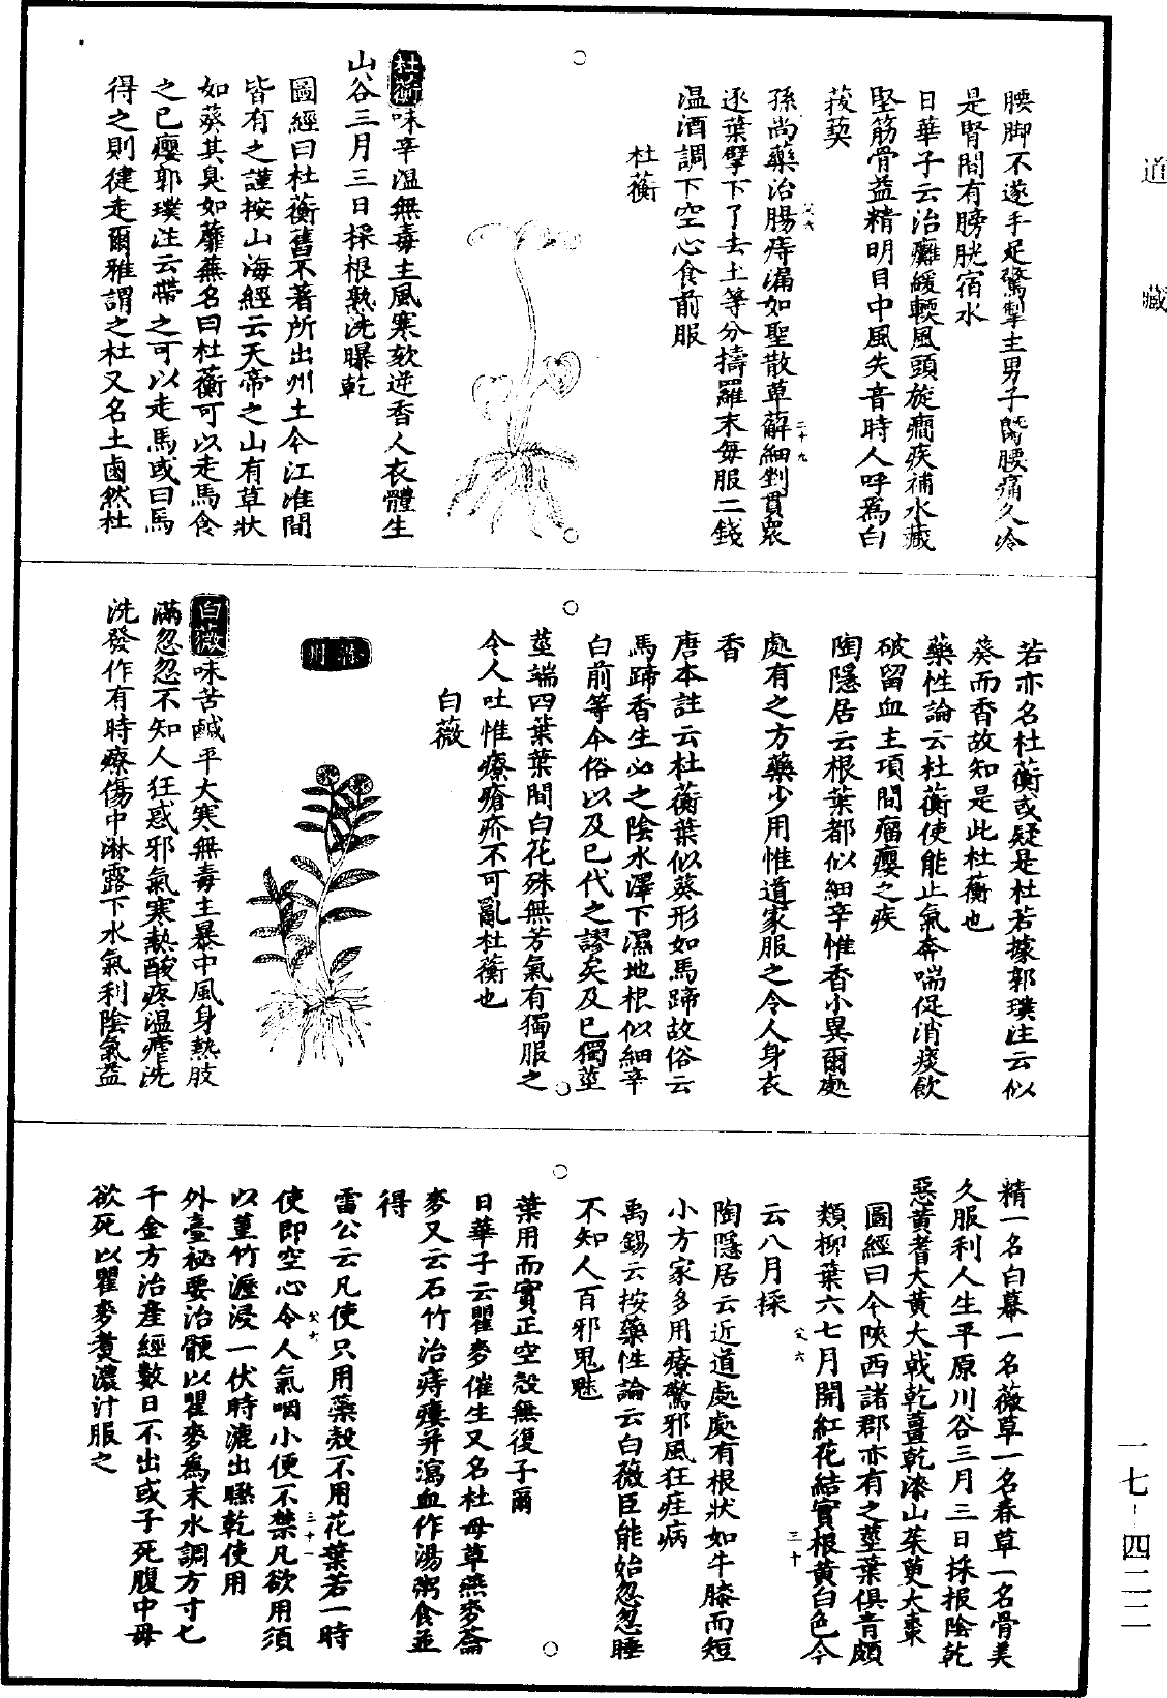 道藏
腰脚不遂手足驚掣主男子䏶腰痛久冷
是腎間有膀胱宿水
日華子云治癱緩輭風頭旋癎疾補水藏
堅筋骨益精明目中風失音時人呼爲白
菝葜
孫尚藥治腸痔漏如聖散草薢細剉貫衆
逐葉擘下了去土等分擣羅末每服二錢
温酒調下空心食前服
杜蘅
杜蘅味辛温無毒主風寒欬逆香人衣體生
山谷三月三日採根熟洗曝乾
圖經曰杜蘅舊不著所出州土今江淮間
皆有之謹按山海經云天帝之山有草狀
如葵其臭如蘼蕪名曰杜蘅可以走馬食
之已癭郭璞注云帶之可以走馬或曰馬
得之則徤走爾雅謂之杜又名土鹵然杜
若亦名杜蘅或疑是杜若據郭璞注云似
葵而香故知是此杜蘅也
藥性論云杜蘅使能止氣奔喘促消痰飲
破留血主項間瘤癭之疾
陶隱居云根葉都似細辛惟香小異爾處
處有之方藥少用惟道家服之令人身衣
香
唐本註云杜蘅葉似葵形如馬蹄故俗云
馬蹄香生山之陰水澤下濕地根似細辛
白前等今俗以及已代之謬矣及已獨莖
莖端四葉葉間白花殊無芳氣有獨服之
令人吐惟療瘡疥不可亂杜蘅也
白薇
滁州
白薇味苦鹹平大寒無毒主暴中風身熱肢
滿忽忽不知人狂惑邪氣寒熱酸疼温瘧洗
洗發作有時療傷中淋露下水氣利陰氣益
精一名白幕一名薇草一名春草一名骨美
久服利人生平原川谷三月三日採根陰乾
惡黃耆大黃大戟乾薑乾漆山茱萸大棗
圖經曰今陝西諸郡亦有之莖葉俱青頗
類柳葉六七月開紅花結實根黃白色今
云八月採
陶隱居云近道處處有根狀如牛膝而短
小方家多用療驚邪風狂疰病
禹錫云按藥性論云白薇臣能始忽忽睡
不知人百邪鬼魅
葉用而實正空殼無復子爾
日華子云瞿麥催生又名杜母草燕麥蘥
麥又云石竹治痔瘻并瀉血作湯粥食並
得
雷公云凡使只用藥殼不用花葉若一時
使即空心令人氣咽小便不禁凡欲用須
以菫竹瀝浸一伏時漉出㬠乾使用
外臺祕要治骾以瞿麥爲末水調方寸七
千金方治產經數日不出或子死腹中母
欲死以瞿麥煑濃汁服之
一七-四二二